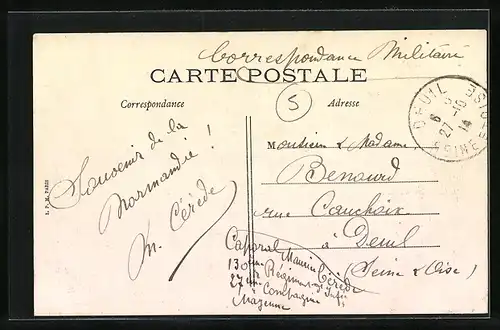 Correspondance Militaire
CARTE POSTALE
Correspondance
Adresse
S
DEUIL
6
27 -10
14
SEINE
Souvenir de la
Normandie !
M. Cérède
Monsieur & Madame
Benourd
rue Cauchoix
à Deuil
(Seine & Oise)
Caporal Maurice Cérède
130e Régiment Infie
27e Compagnie
Mayenne